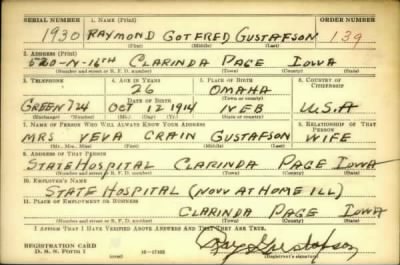 SERIAL NUMBER 1. NAME (Print) ORDER NUMBER
1930 RAYMOND GOTFRED GUSTAFSON 139
(First) (Middle) (Last)
2. ADDRESS (Print)
520-N-16TH CLARINDA PAGE IOWA
(Number and street or R. F. D. number) (Town) (County) (State)
3. TELEPHONE 4. AGE IN YEARS 5. PLACE OF BIRTH 6. COUNTRY OF CITIZENSHIP
26 OMAHA
DATE OF BIRTH (Town or county)
GREEN 724 OCT 12 1914 NEB U.S.A
(Exchange) (Number) (Mo.) (Day) (Yr.) (State or country)
7. NAME OF PERSON WHO WILL ALWAYS KNOW YOUR ADDRESS 8. RELATIONSHIP OF THAT PERSON
MRS VEVA CRAIN GUSTAFSON WIFE
(Mr., Mrs., Miss) (First) (Middle) (Last)
9. ADDRESS OF THAT PERSON
STATE HOSPITAL CLARINDA PAGE IOWA
(Number and street or R. F. D. number) (Town) (County) (State)
10. EMPLOYER'S NAME
STATE HOSPITAL (NOW AT HOME ILL)
11. PLACE OF EMPLOYMENT OR BUSINESS
CLARINDA PAGE IOWA
(Number and street or R. F. D. number) (Town) (County) (State)
I AFFIRM THAT I HAVE VERIFIED ABOVE ANSWERS AND THAT THEY ARE TRUE.
REGISTRATION CARD Ray Gustafson
D. S. S. FORM 1 (Registrant's signature)